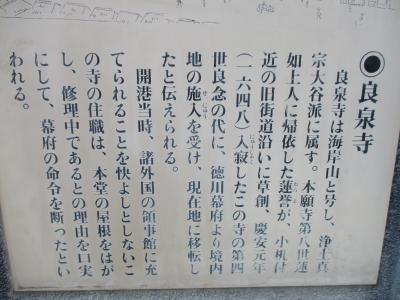 ◉良泉寺
良泉寺は海岸山と号し、浄土真
宗大谷派に属す。本願寺第八世蓮
如上人に帰依した蓮誉が、小机付
近の旧街道沿いに草創、慶安元年
(一六四八)入寂したこの寺の第四
世良念の代に、徳川幕府より境内
地の施入を受け、現在地に移転し
たと伝えられる。
開港当時、諸外国の領事館に充
てられることを快よしとしないこ
の寺の住職は、本堂の屋根をはが
し、修理中であるとの理由を口実
にして、幕府の命令を断ったとい
われる。